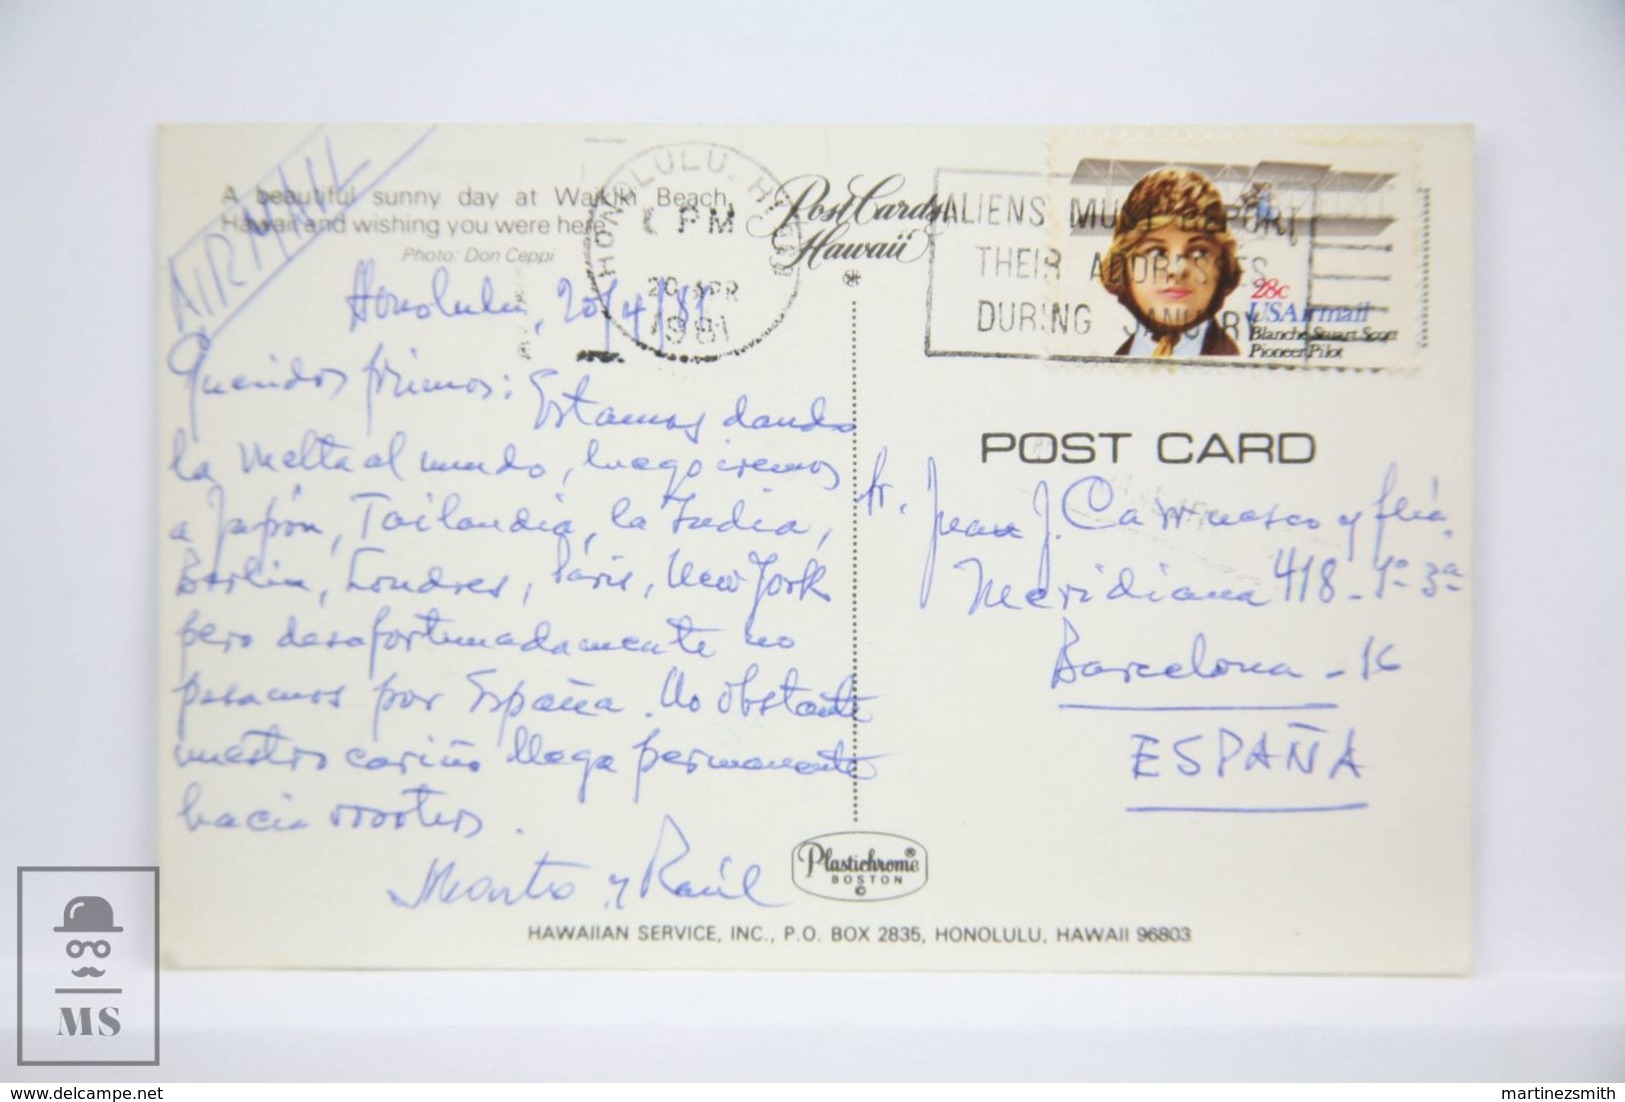 AIRMAIL
A beautiful sunny day at Waikiki Beach,
Hawaii and wishing you were here.
Photo: Don Ceppi
HONOLULU, HI
PM
20 APR
1981
Post Cards
Hawaii
ALIENS MUST REPORT
THEIR ADDRESSES
DURING JANUARY
28c
USAirmail
Blanche Stuart Scott
Pioneer Pilot
Honolulu, 20/4/81
Queridos primos: Estamos dando
la vuelta al mundo, luego iremos
a Japón, Tailandia, la India,
Berlin, Londres, Paris, New York
pero desafortunadamente no
pasamos por España. No obstante
nuestro cariño llega permanente
hacia vosotros.
Marta y Raúl
POST CARD
Sr. Juan J. Carrasco y flia.
Meridiana 418-1º-3ª
Barcelona-16
ESPAÑA
Plastichrome®
BOSTON
©
HAWAIIAN SERVICE, INC., P.O. BOX 2835, HONOLULU, HAWAII 96803
MS
www.delcampe.net
martinezsmith